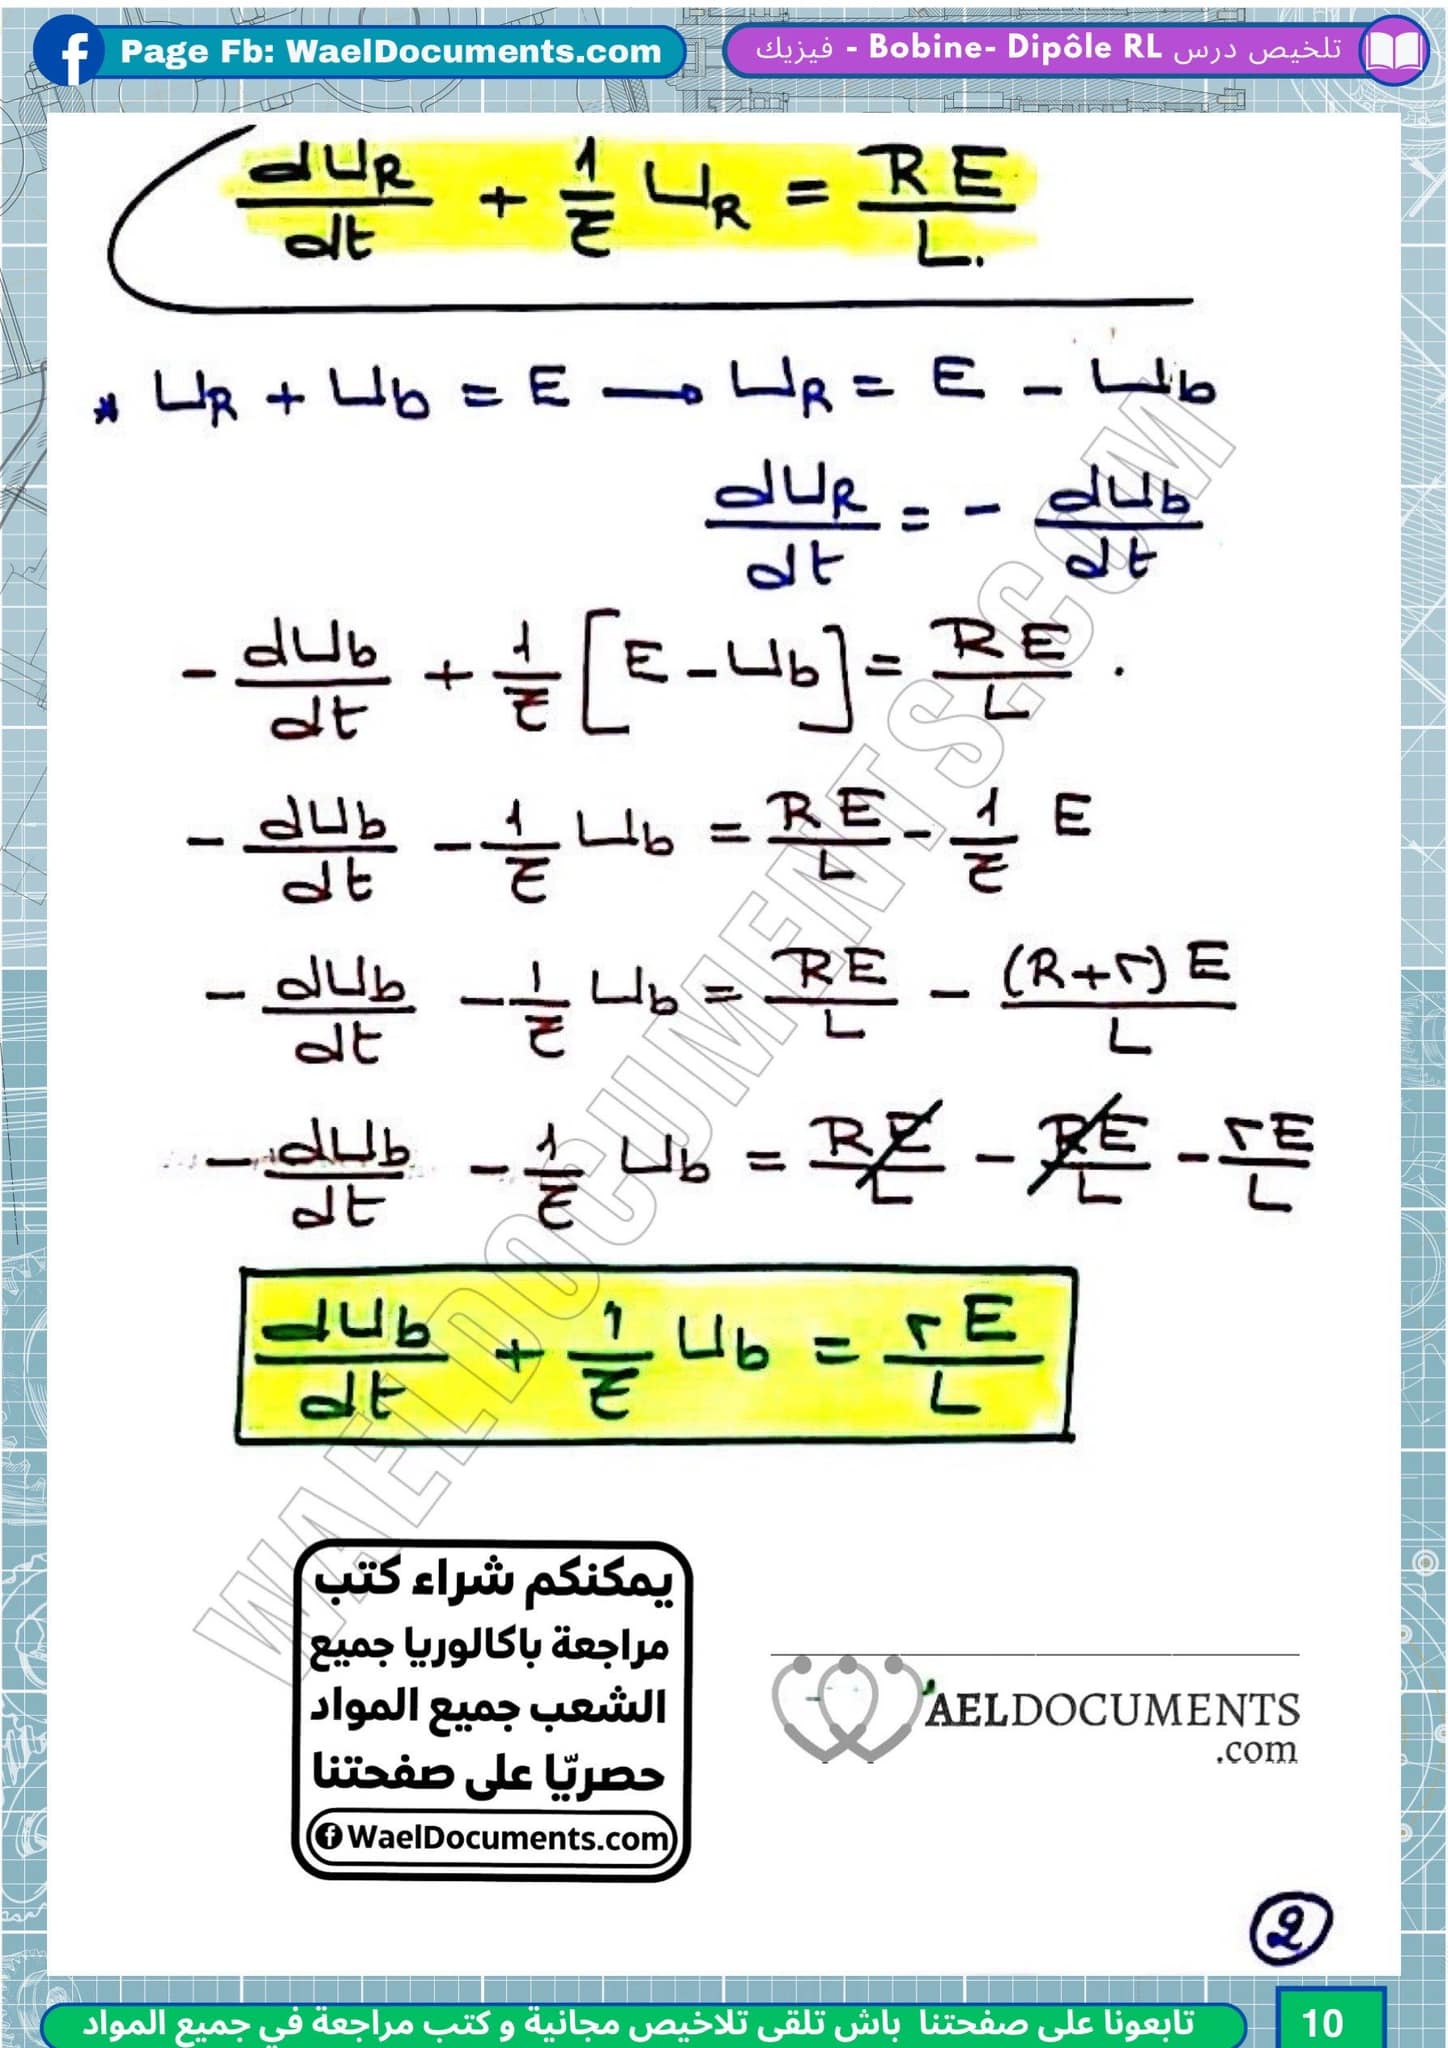 Page Fb: WaelDocuments.com
تلخيص درس Bobine- Dipôle RL - فيزيك
dU_R/dt + 1/τ U_R = RE/L.
* U_R + U_b = E → U_R = E - U_b
dU_R/dt = - dU_b/dt
- dU_b/dt + 1/τ [E - U_b] = RE/L .
- dU_b/dt - 1/τ U_b = RE/L - 1/τ E
- dU_b/dt - 1/τ U_b = RE/L - (R+r)E/L
- dU_b/dt - 1/τ U_b = RE/L - RE/L - rE/L
dU_b/dt + 1/τ U_b = rE/L
WAELDOCUMENTS.COM
يمكنكم شراء كتب
مراجعة باكالوريا جميع
الشعب جميع المواد
حصريّا على صفحتنا
WaelDocuments.com
WAELDOCUMENTS
.com
2
تابعونا على صفحتنا باش تلقى تلاخيص مجانية و كتب مراجعة في جميع المواد
10